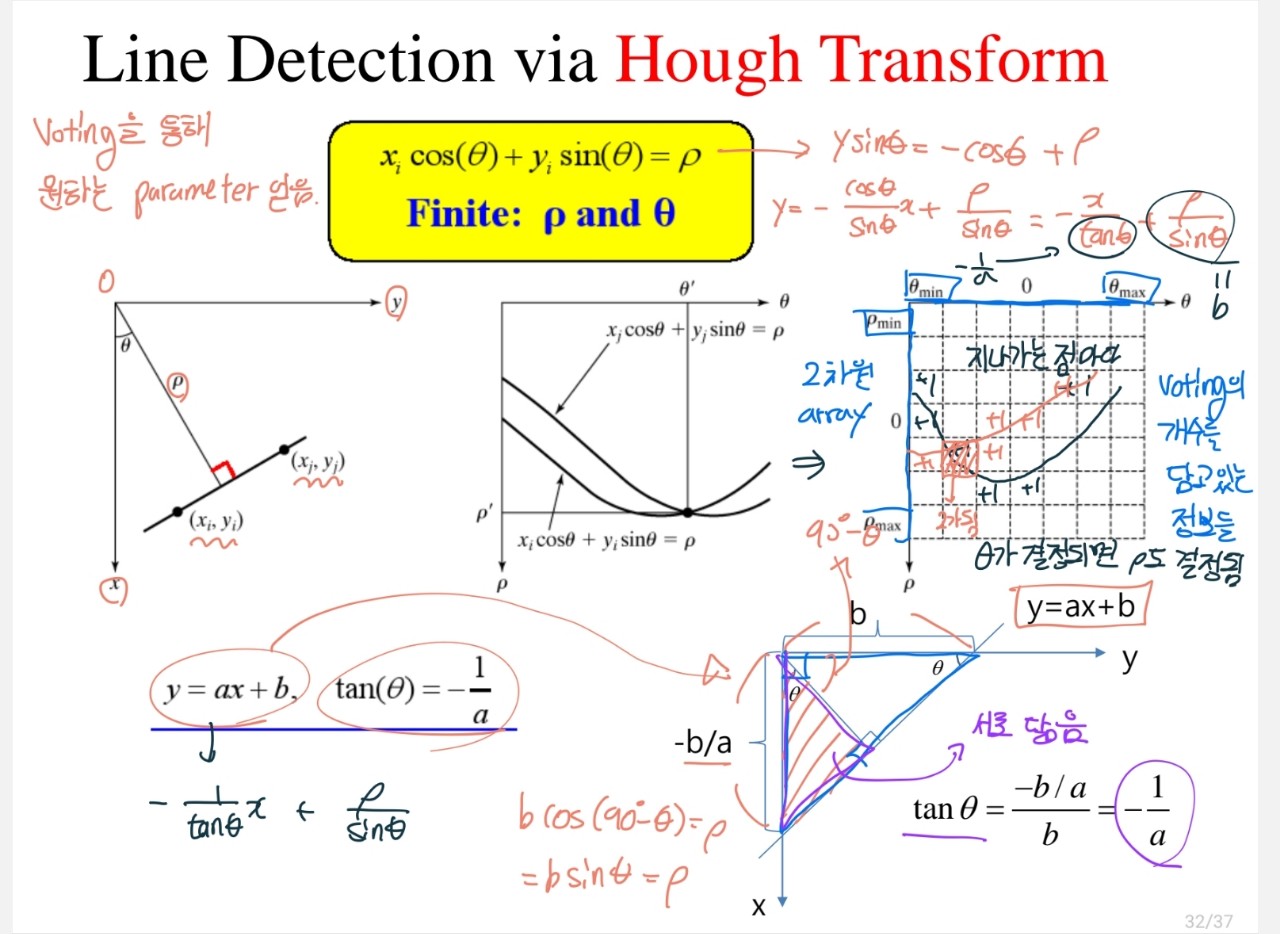 Line Detection via Hough Transform
Voting을 통해
원하는 parameter 얻음.
xᵢ cos(θ) + yᵢ sin(θ) = ρ
Finite: ρ and θ
y sinθ = -cosθ + ρ
y = - cosθ/sinθ x + ρ/sinθ = - x/tanθ + ρ/sinθ
-1/a
=
b
O
y
θ
ρ
(xⱼ, yⱼ)
(xᵢ, yᵢ)
x
θ′
θ
xⱼcosθ + yⱼsinθ = ρ
ρ′
xᵢcosθ + yᵢsinθ = ρ
ρ
2차원
array
⇒
θmin
0
θmax
θ
ρmin
지나가는 점마다
+1
+1
+1
0
+1
+1
+1
+1
+1
+1
2가됨
ρmax
ρ
Voting의
개수를
담고있는
정보들
θ가 결정되면 ρ도 결정됨
90°-θ
y = ax + b, tan(θ) = -1/a
- 1/tanθ x + ρ/sinθ
b cos(90°-θ) = ρ
= b sinθ = ρ
b
y=ax+b
y
θ
θ
-b/a
x
서로 닮음
tan θ = (-b/a)/b = -1/a
32/37